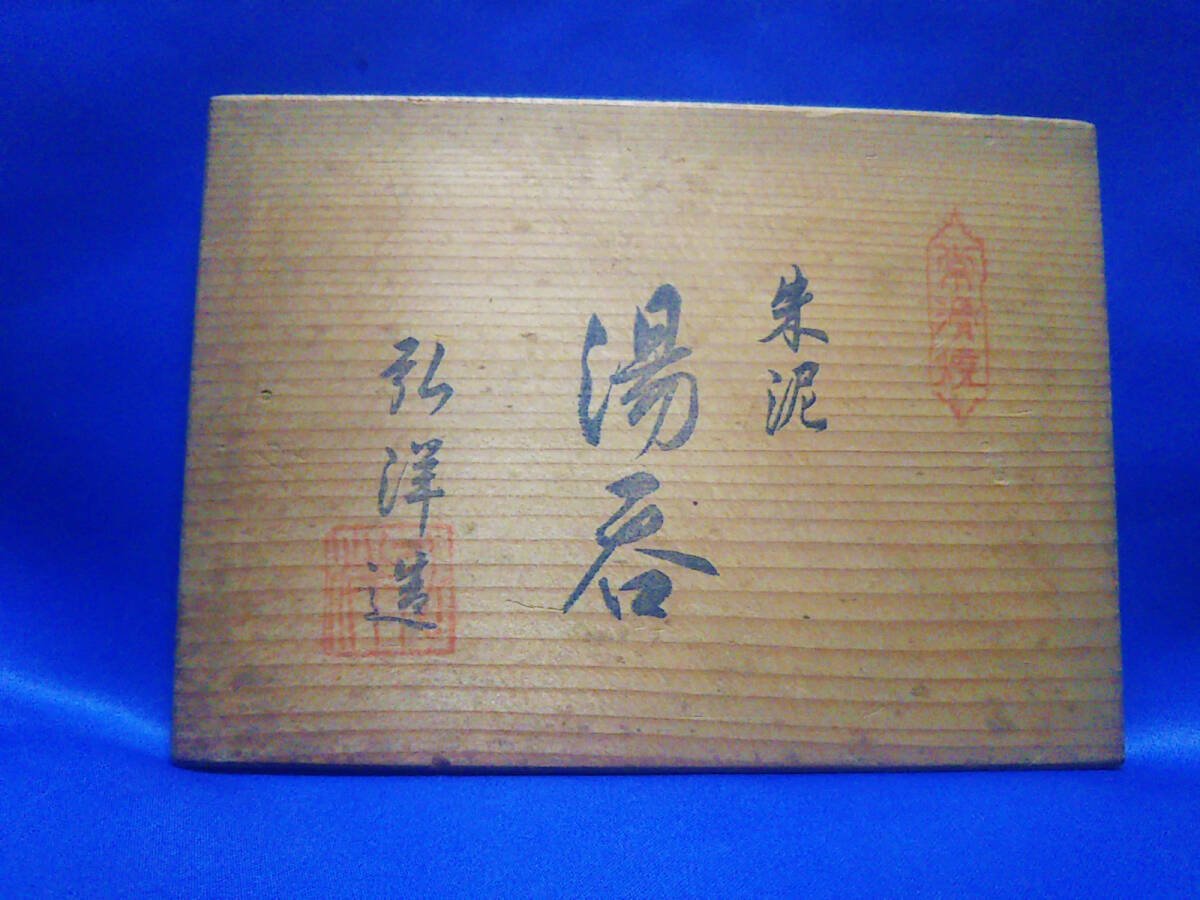 常滑焼
朱泥
湯呑
弘洋造